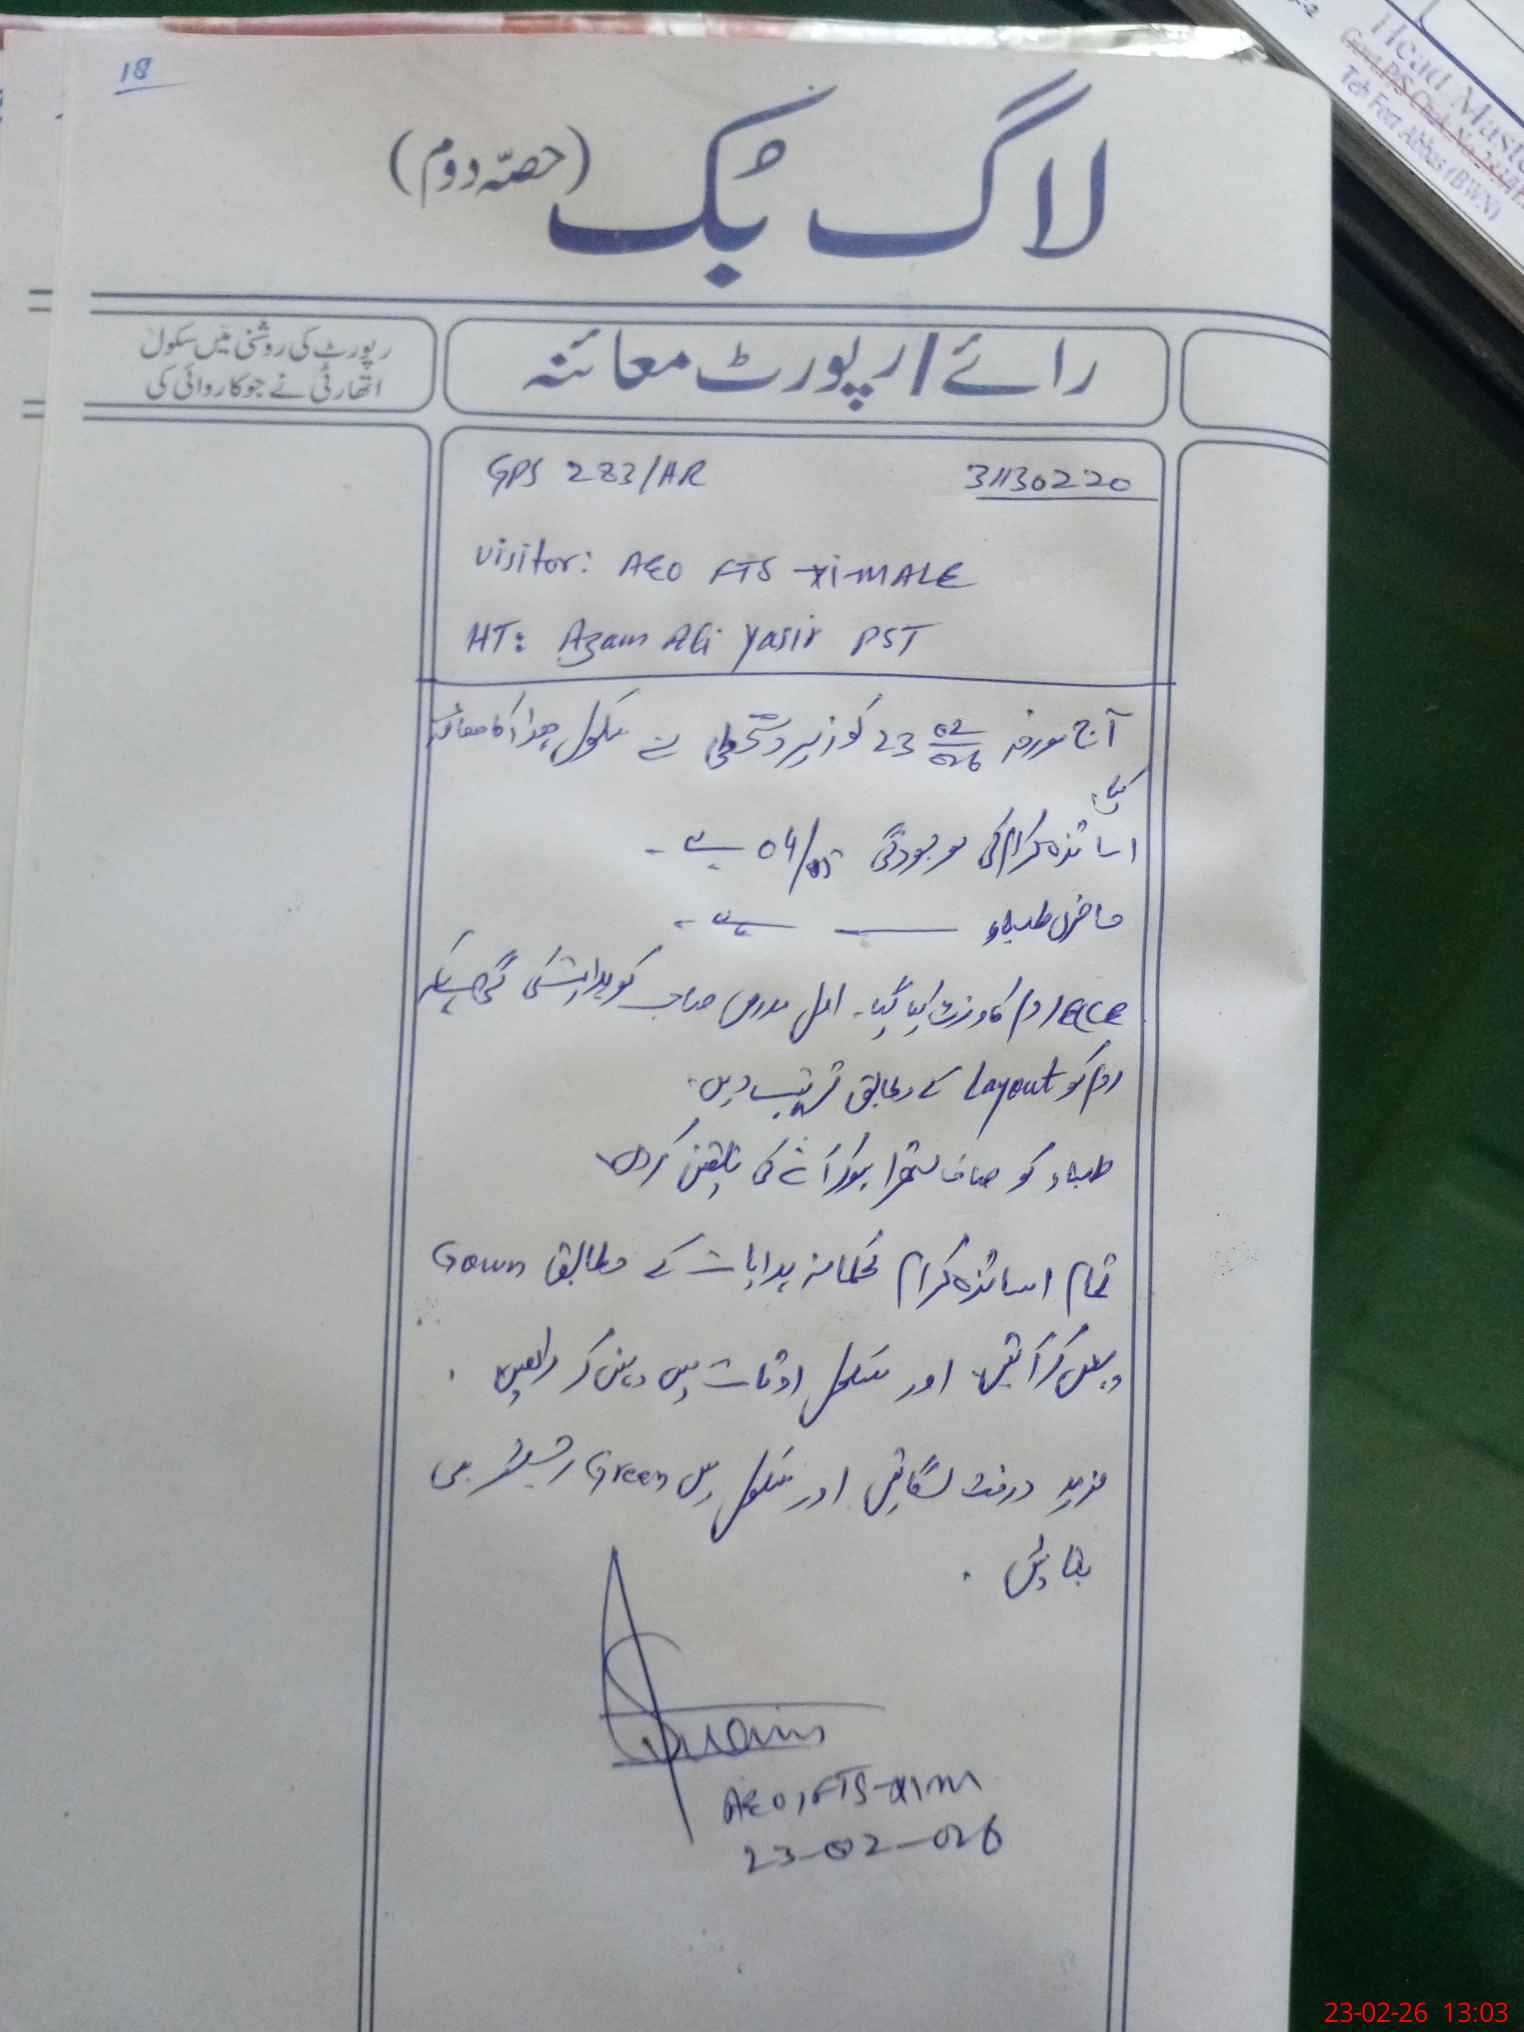 18
لاگ بک (حصّہ دوم)
رائے / رپورٹ معائنہ
رپورٹ کی روشنی میں سکول
اتھارٹی نے جو کاروائی کی
GPS 283/HR 31130220
Visitor: AEO FTS-XI-MALE
HT: Azam Ali Yasir PST
آج مورخہ 23 02/026 کو زیر دستخطی نے سکول ھذا کا معائنہ
کیا۔
اساتذہ کرام کی موجودگی 04/05 ہے۔
حاضری طلباء — ہے۔
ECE روم کا وزٹ کیا گیا۔ اول مدرس صاحب کو ہدایت کی گئی ہے کہ
روم کو Layout کے مطابق ترتیب دیں۔
طلباء کو صاف ستھرا ہو کر آنے کی تلقین کریں۔
تمام اساتذہ کرام محکمانہ ہدایات کے مطابق Gown
پہن کر آئیں۔ اور سکول اوقات میں پہن کر رکھیں۔
مزید درخت لگائیں اور سکول میں Green بھی
بنائیں۔
AEO, FTS-XI-M
23-02-026
Head Maste
Govt. P/S Chak No. 283/H
Teh Fort Abbas (BWN)
23-02-26 13:03